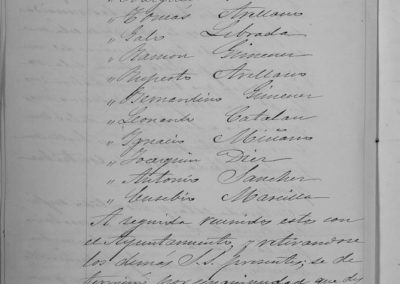 " Tomas Arellano
" Galo Librada
" Ramon Gimener
" Ruperto Arellano
" Bernardino Gimener
" Leonardo Catalan
" Ygnacio Miñano
" Joarquin Dier
" Antonio Sancher
" Eusebio Marcilla
A seguida reunidos estos con
el Ayuntamiento, y retirandose
los demas S.S. presentes; se de
terminó por unanimidad que de